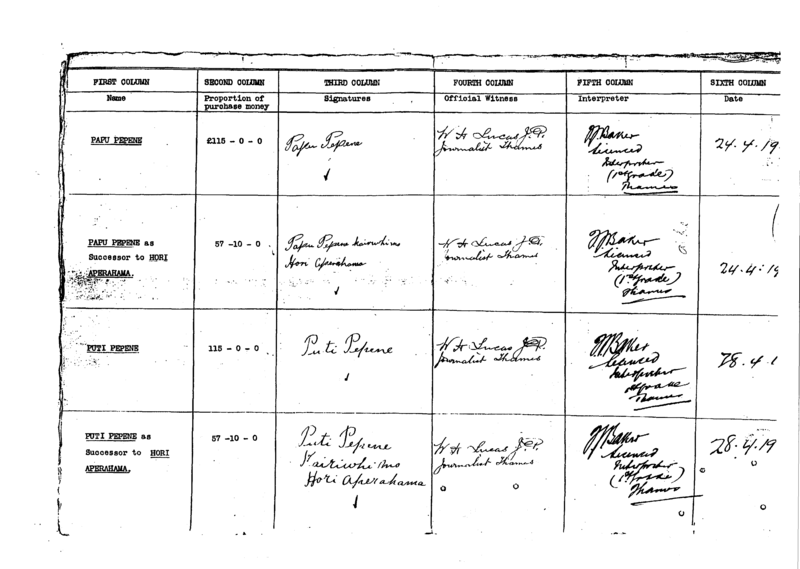 FIRST COLUMN SECOND COLUMN THIRD COLUMN FOURTH COLUMN FIFTH COLUMN SIXTH COLUMN
Name Proportion of purchase money Signatures Official Witness Interpreter Date
PAPU PEPENE
£115 - 0 - 0
Papu Pepene
W H Lucas J.P.
Journalist Thames
Baker
Licenced
Interpreter
(1st grade)
Thames
24.4.19
PAPU PEPENE as
Successor to HORI
APERAHAMA.
57 -10 - 0
Papu Pepene kaiwhiwi
Hori Aperahama
W H Lucas J.P.
Journalist Thames
Baker
Licenced
Interpreter
(1st grade)
Thames
24.4.19
PUTI PEPENE
115 - 0 - 0
Puti Pepene
W H Lucas J.P.
Journalist Thames
Baker
Licenced
Interpreter
1st grade
Thames
28.4.1
PUTI PEPENE as
Successor to HORI
APERAHAMA.
57 -10 - 0
Puti Pepene
Hori Aperahama
W H Lucas J.P.
Journalist Thames
Baker
Licenced
Interpreter
(1st grade)
Thames
28.4.19